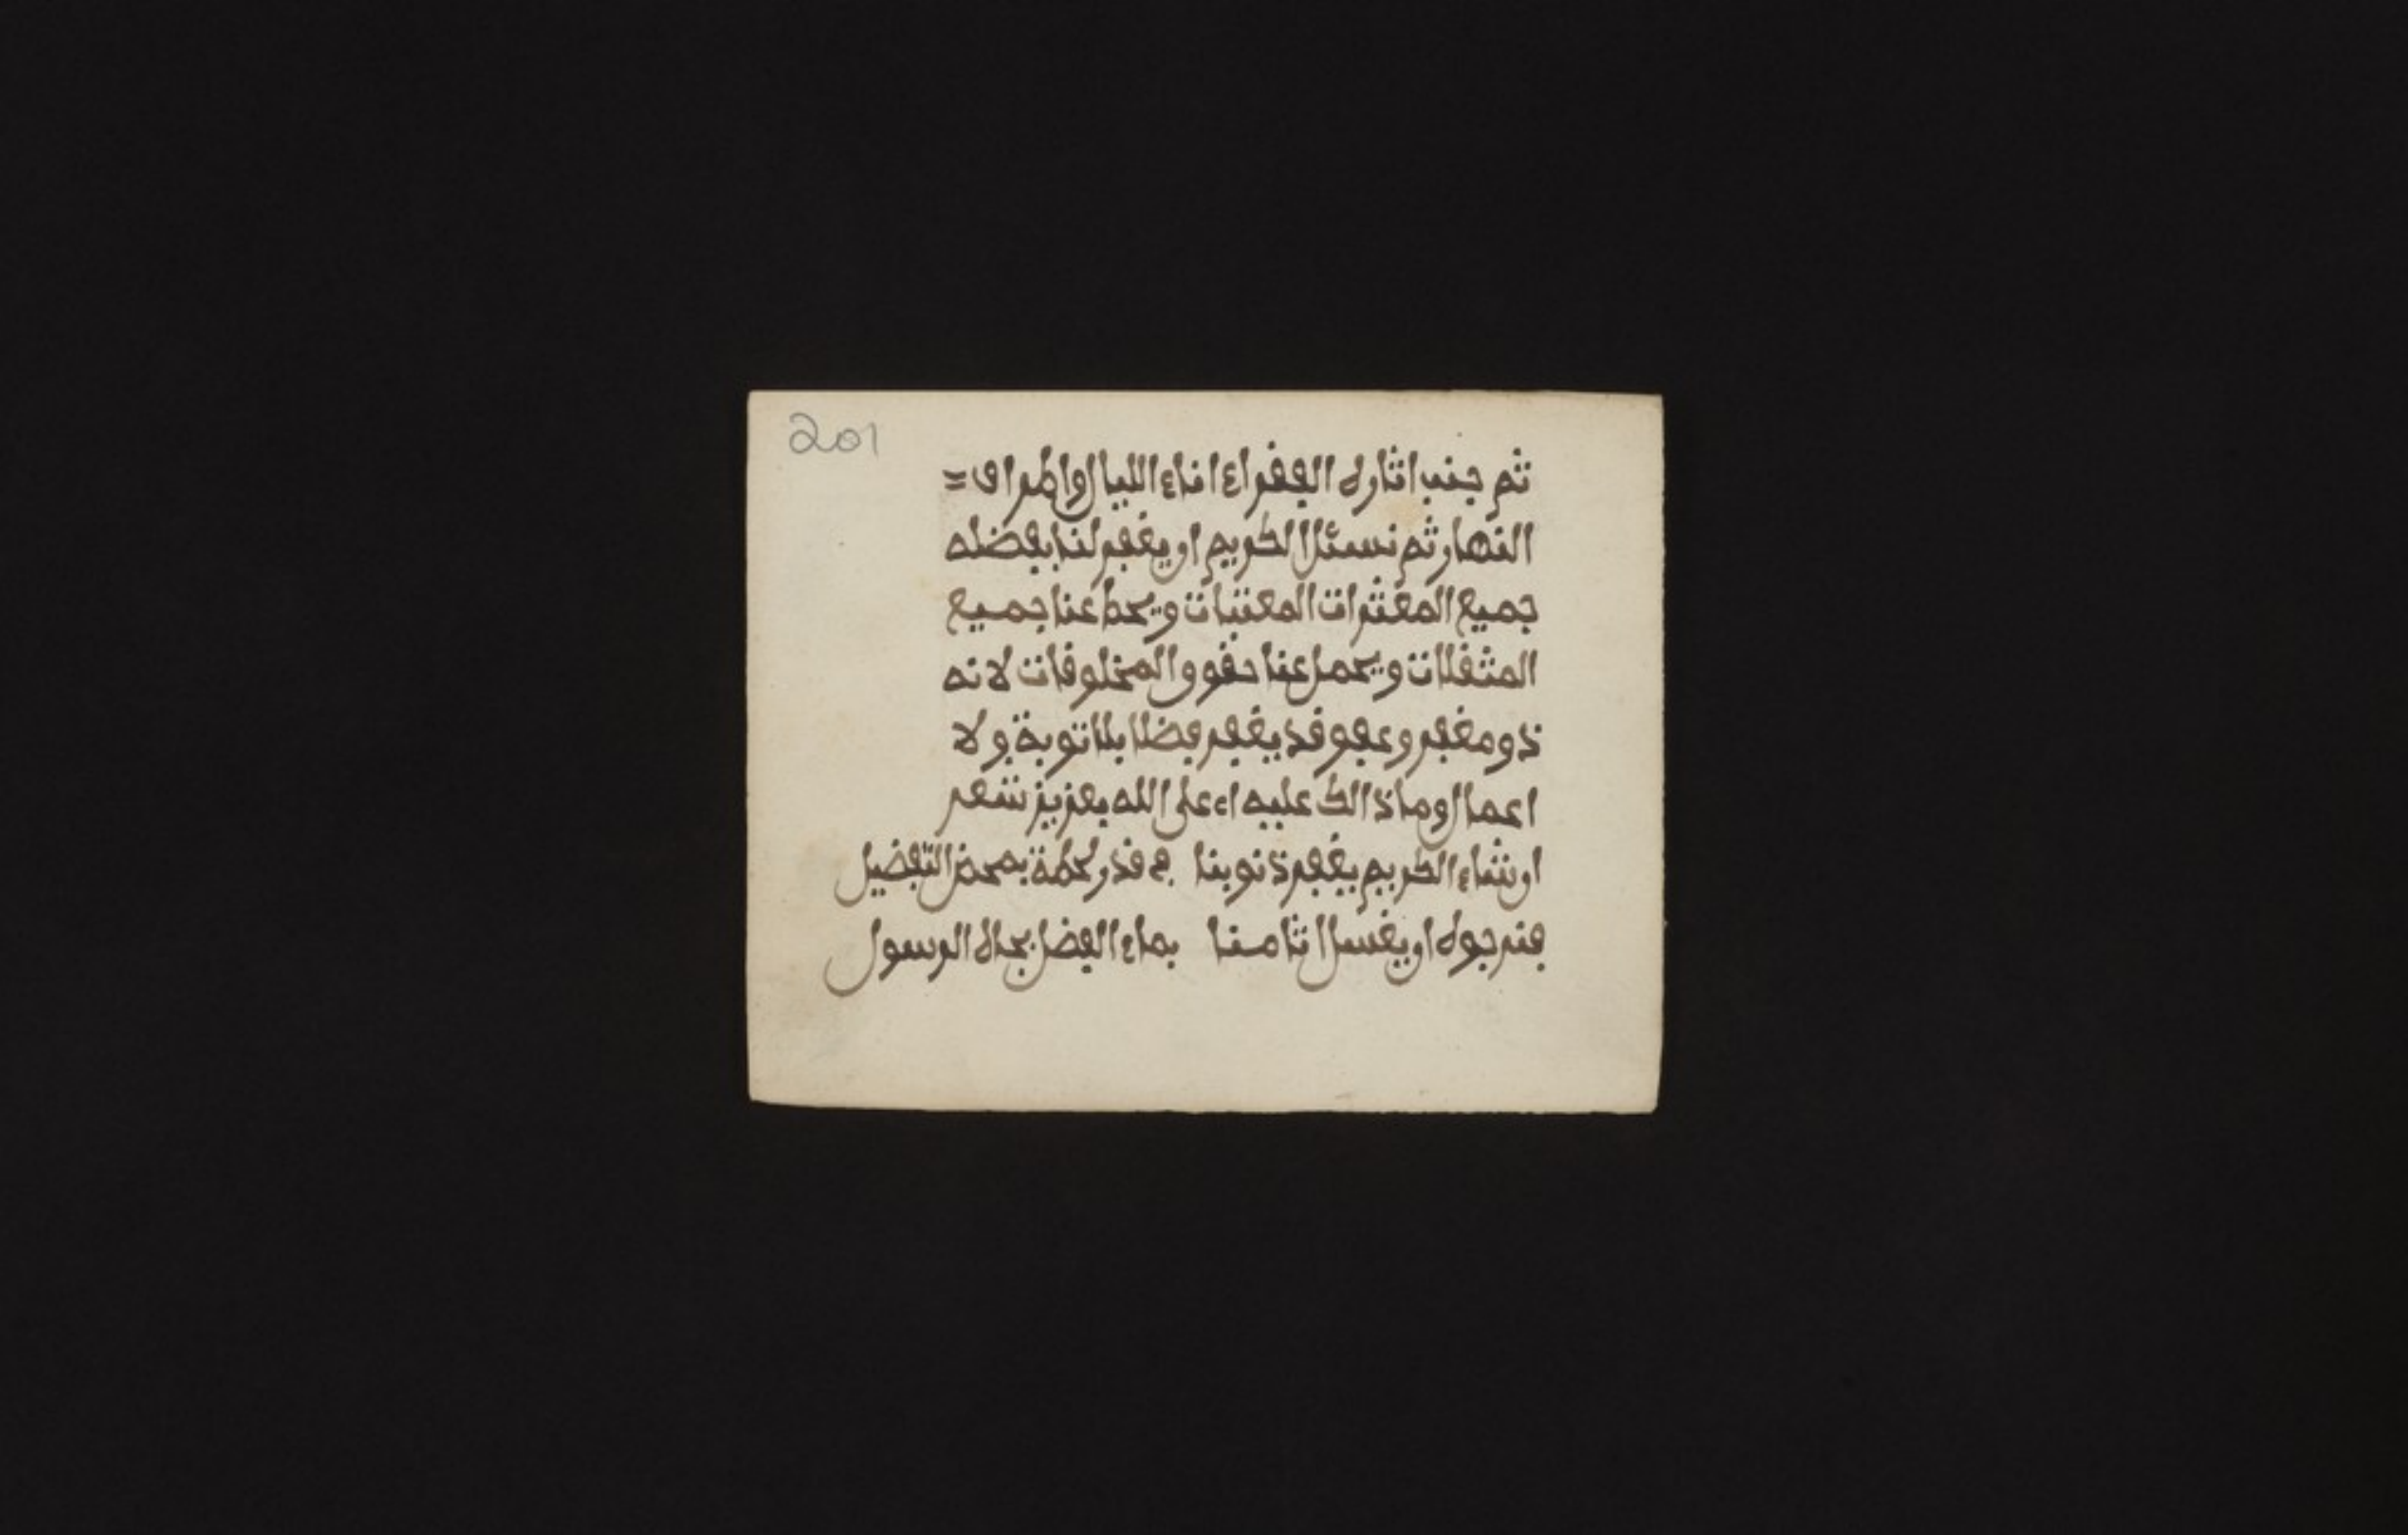 201
ثم جنب اثاره الفقراء اناء الليال واطراف =
النهار ثم نسئل الكريم ان يغفر لنا بفضله
جميع المعثرات المعتبات ويحط عنا جميع
المثقلات ويحمل عنا حقوق المخلوقات لانه
ذو مغفر وعفو قد يغفر فضلا بلا توبة ولا
اعمال وما ذالك عليه اء على الله بعزيز شعر
ان شاء الكريم يغفر ذنوبنا في قدر لحظة بمحض التفضيل
فنرجوه ان يغسل اثامنا بماء الفضل بجاه الرسول